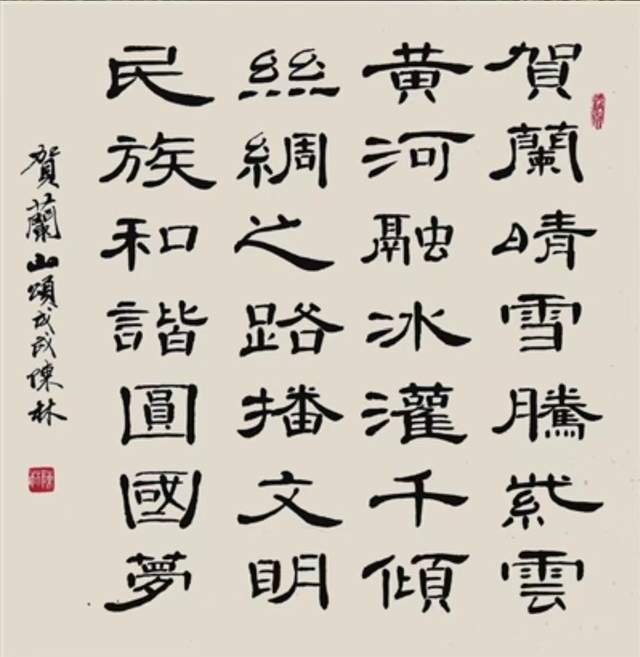 賀蘭晴雪騰紫雲
黄河融冰灌千傾
絲綢之路播文明
民族和諧圓國夢
賀蘭山頌戊戌陳林